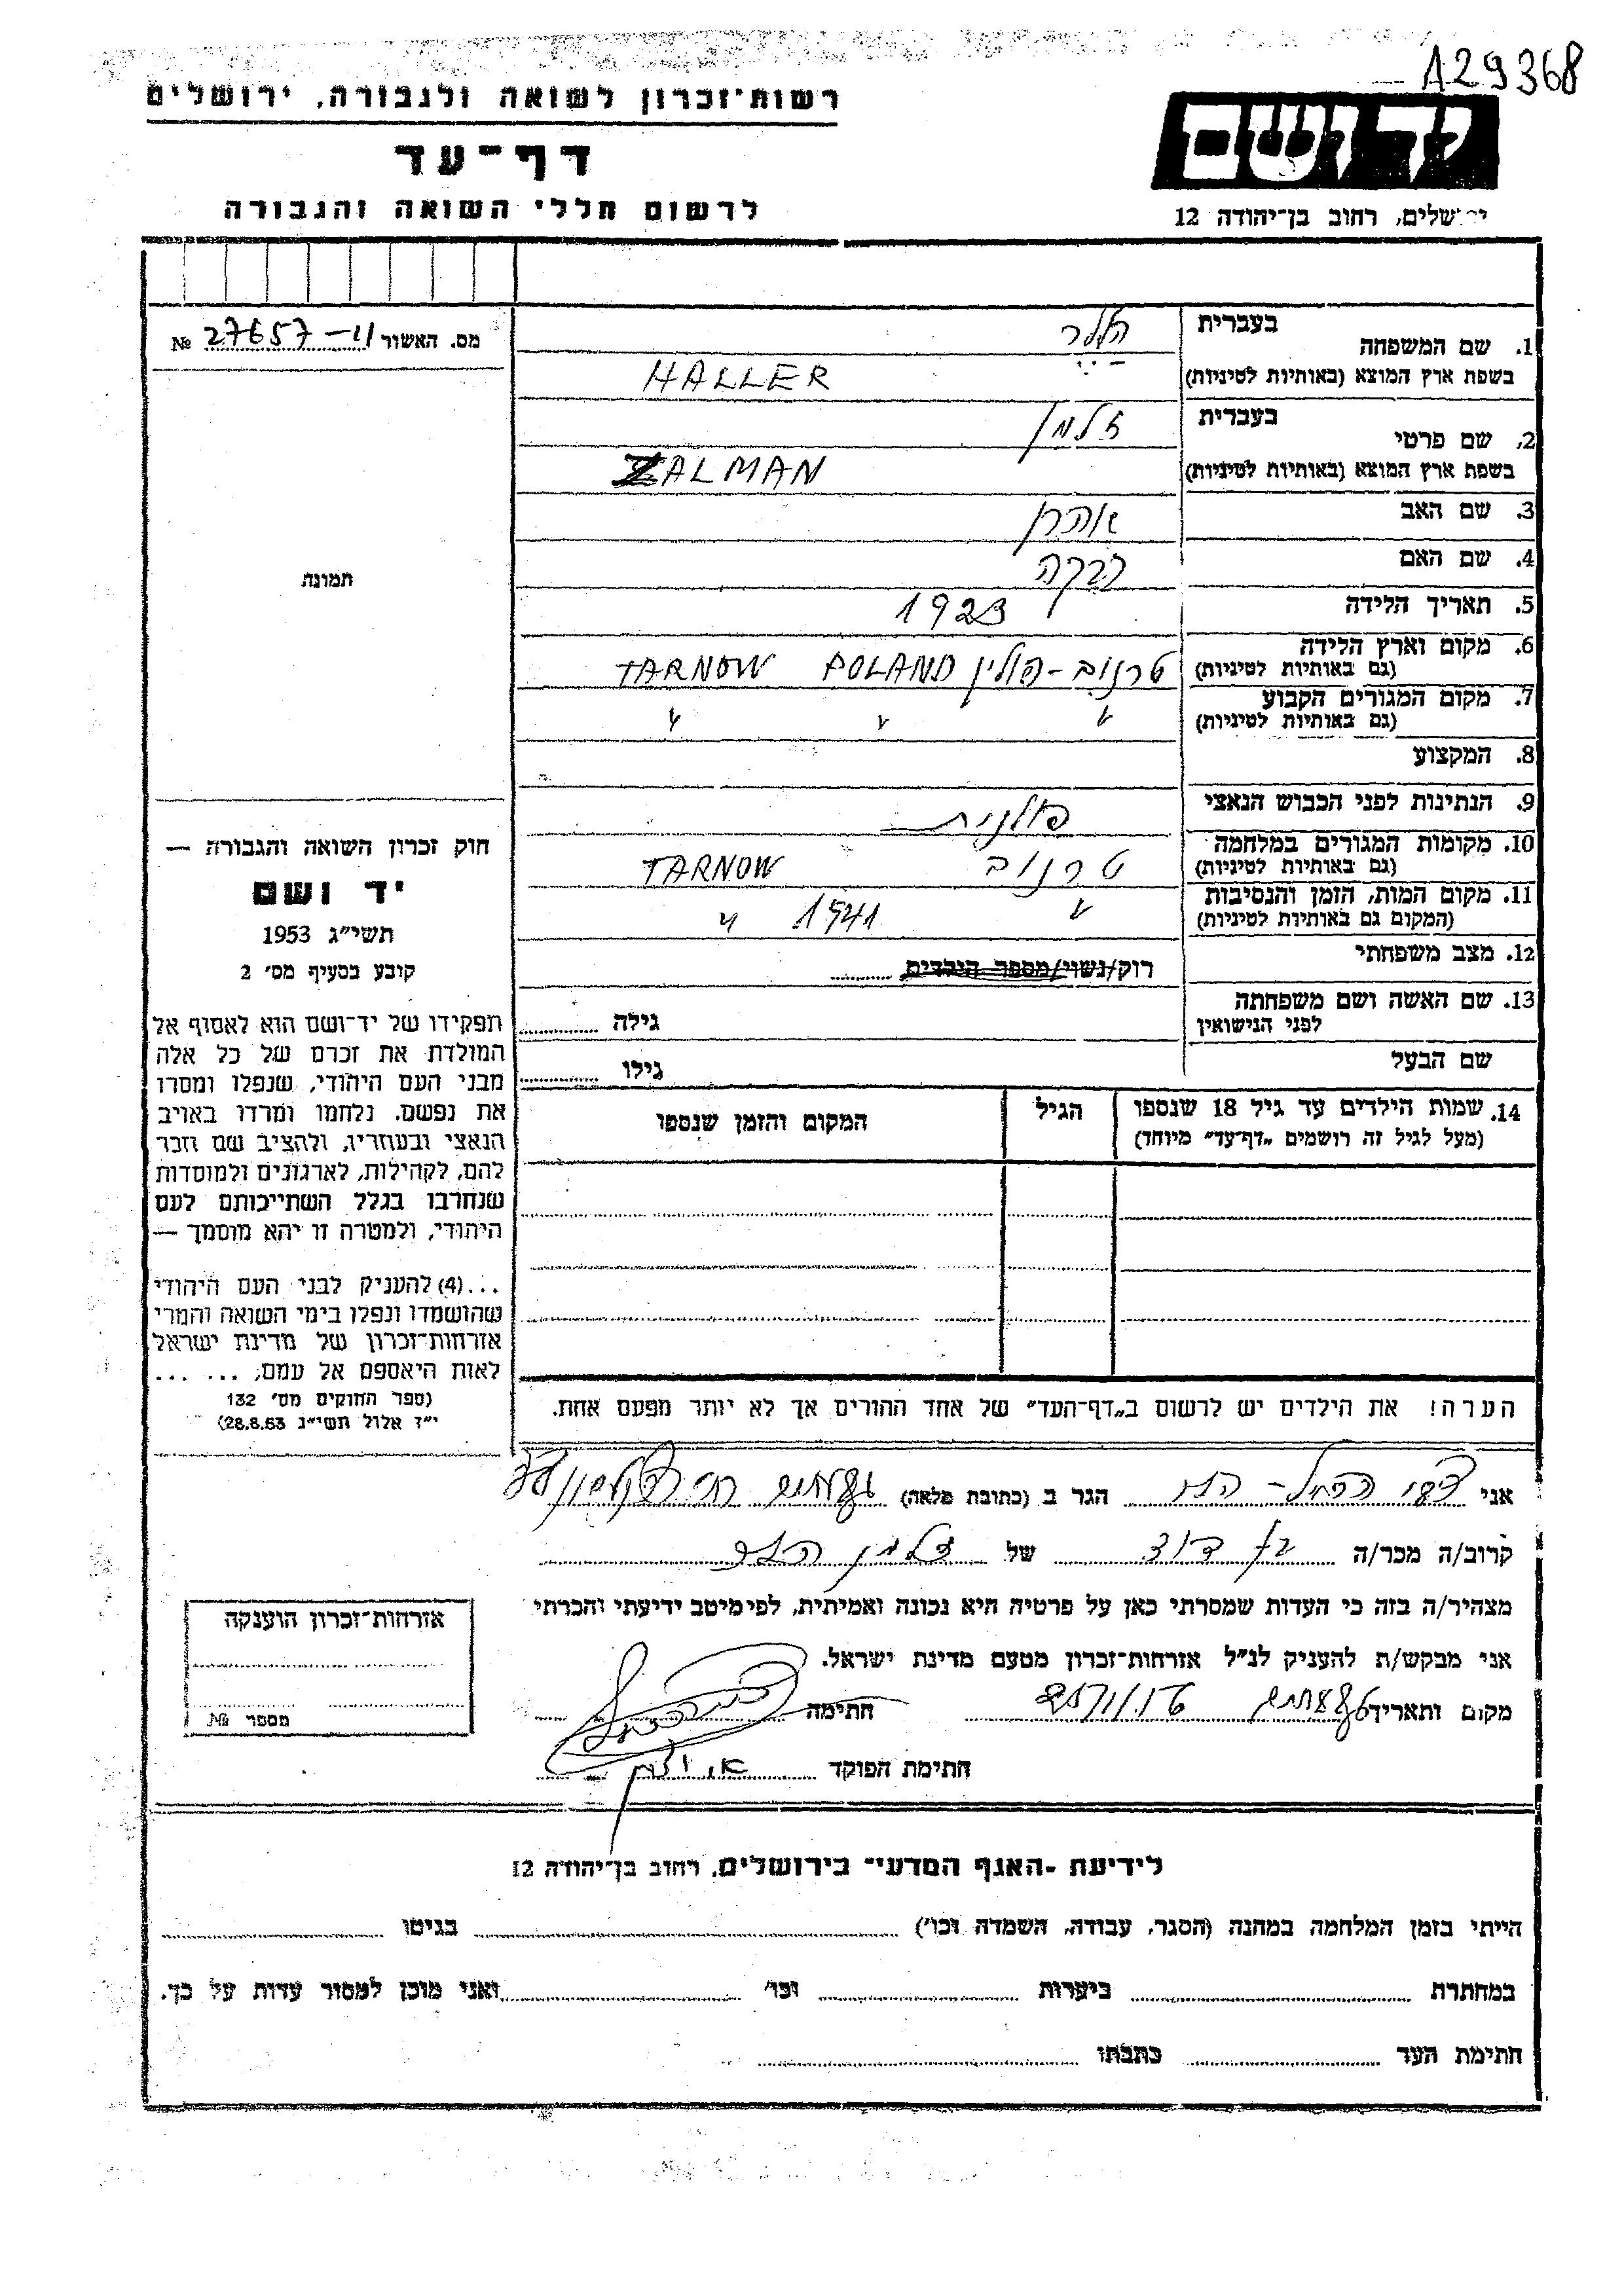 A29368
רשות־זכרון לשואה ולגבורה, ירושלים
דף־עד
לרשום חללי השואה והגבורה
יד ושם
ירושלים, רחוב בן־יהודה 12
מס. האשור № 27657-
1. שם המשפחה בעברית הללר
בשפת ארץ המוצא (באותיות לטיניות) HALLER
2. שם פרטי בעברית זלמן
בשפת ארץ המוצא (באותיות לטיניות) ZALMAN
3. שם האב אהרן
4. שם האם רבקה
5. תאריך הלידה 1923
6. מקום וארץ הלידה
(גם באותיות לטיניות) טרנוב-פולין POLAND TARNOW
7. מקום המגורים הקבוע
(גם באותיות לטיניות) " " "
8. המקצוע
9. הנתינות לפני הכבוש הנאצי פולנית
10. מקומות המגורים במלחמה
(גם באותיות לטיניות) טרנוב TARNOW
11. מקום המות, הזמן והנסיבות
(המקום גם באותיות לטיניות) " 1941 "
12. מצב משפחתי רוק/נשוי/מספר הילדים
13. שם האשה ושם משפחתה
לפני הנישואין גילה
שם הבעל גילו
14. שמות הילדים עד גיל 18 שנספו הגיל המקום והזמן שנספו
(מעל לגיל זה רושמים „דף־עד” מיוחד)
הערה! את הילדים יש לרשום ב„דף־העד” של אחד ההורים אך לא יותר מפעם אחת.
תמונה
חוק זכרון השואה והגבורה —
יד ושם
תשי״ג 1953
קובע בסעיף מס׳ 2
תפקידו של יד־ושם הוא לאסוף אל
המולדת את זכרם של כל אלה
מבני העם היהודי, שנפלו ומסרו
את נפשם, נלחמו ומרדו באויב
הנאצי ובעוזריו, ולהציב שם וזכר
להם, לקהילות, לארגונים ולמוסדות
שנחרבו בגלל השתייכותם לעם
היהודי, ולמטרה זו יהא מוסמך —
...(4) להעניק לבני העם היהודי
שהושמדו ונפלו בימי השואה והמרי
אזרחות־זכרון של מדינת ישראל
לאות היאספם אל עמם; ... ...
(ספר החוקים מס׳ 132
י״ד אלול תשי״ג 28.8.53)
אני הגר ב (כתובת מלאה)
קרוב/ה מכר/ה בן דוד של זלמן הלר
מצהיר/ה בזה כי העדות שמסרתי כאן על פרטיה היא נכונה ואמיתית, לפי מיטב ידיעתי והכרתי
אני מבקש/ת להעניק לנ״ל אזרחות־זכרון מטעם מדינת ישראל.
מקום ותאריך חתימה
חתימת הפוקד
אזרחות־זכרון הוענקה
מספר №
לידיעת -האגף המדעי־ בירושלים, רחוב בן־יהודה 12
הייתי בזמן המלחמה במחנה (הסגר, עבודה, השמדה וכו׳) בגיטו
במחתרת ביערות וכו׳ ואני מוכן למסור עדות על כך.
חתימת העד כתבתו